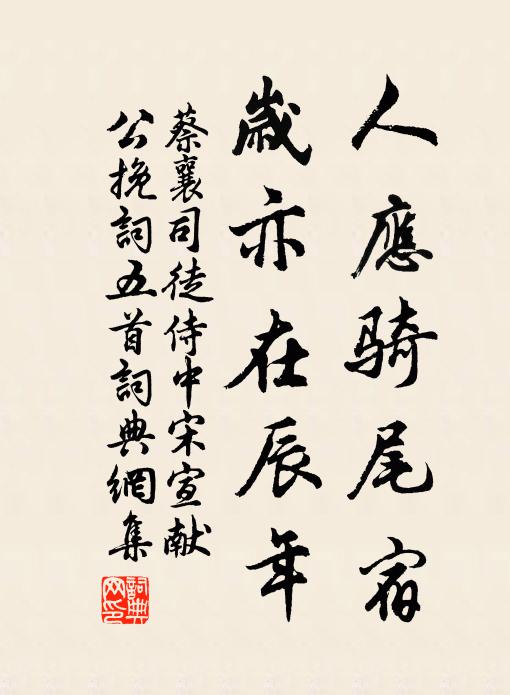 人應騎尾宿
歲亦在辰年
蔡襄司徒侍中宋宣献
公挽詞五首詞典網集